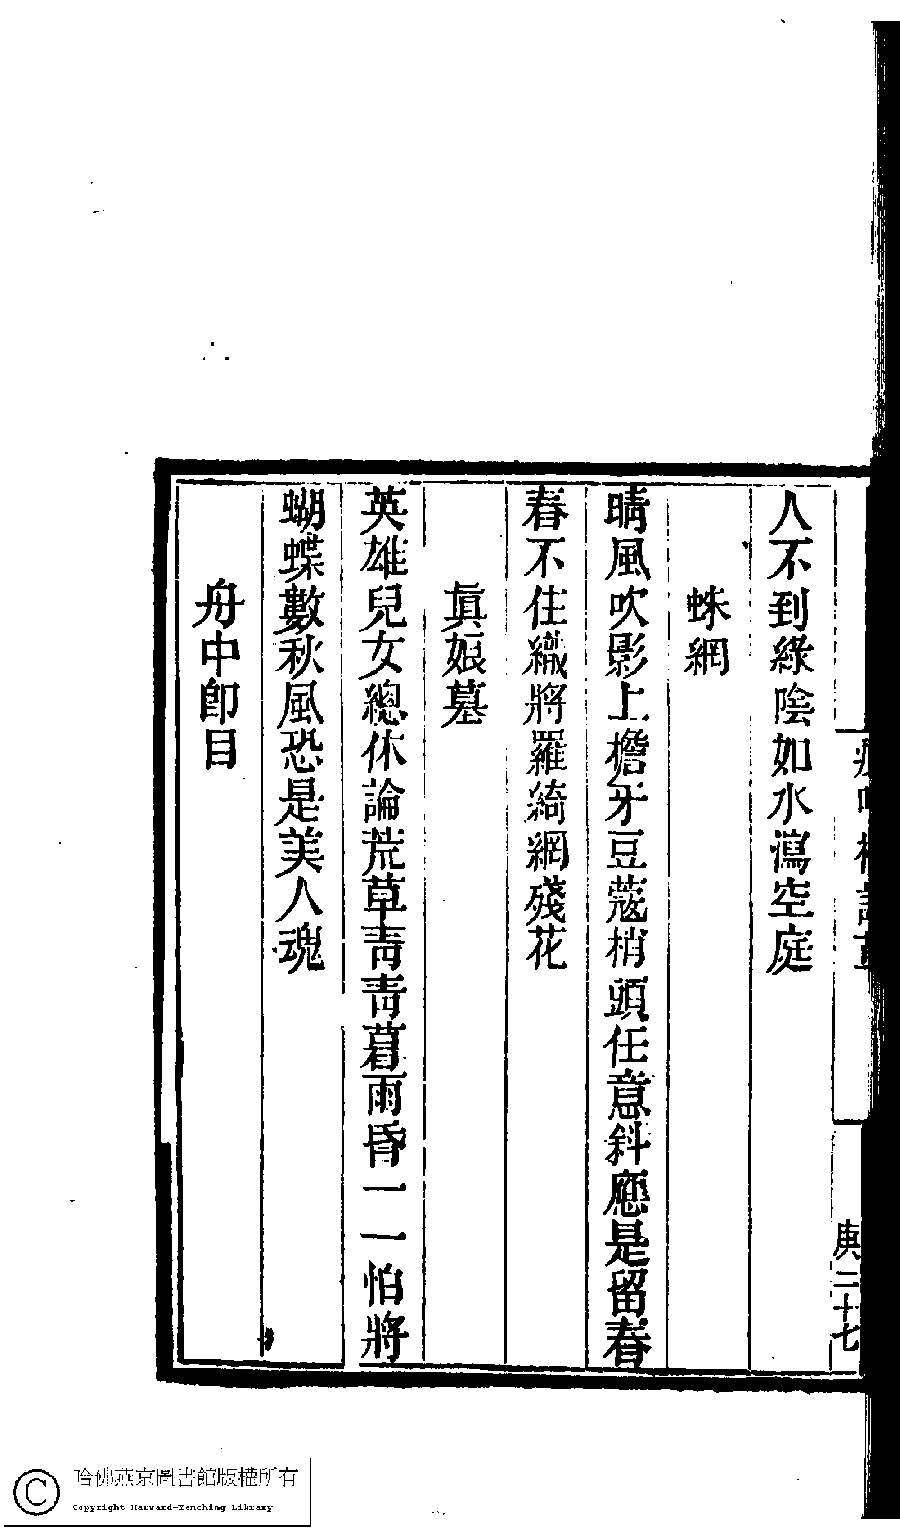 庚二十七
人不到綠陰如水瀉空庭
蛛網
晴風吹影上檐牙豆蔻梢頭任意斜應是留春
春不住織將羅綺網殘花
眞娘墓
英雄兒女總休論荒草靑靑暮雨昏一一怕將
蝴蝶數秋風恐是美人魂
舟中卽目
哈佛燕京圖書館版權所有
Copyright Harvard-Yenching Library